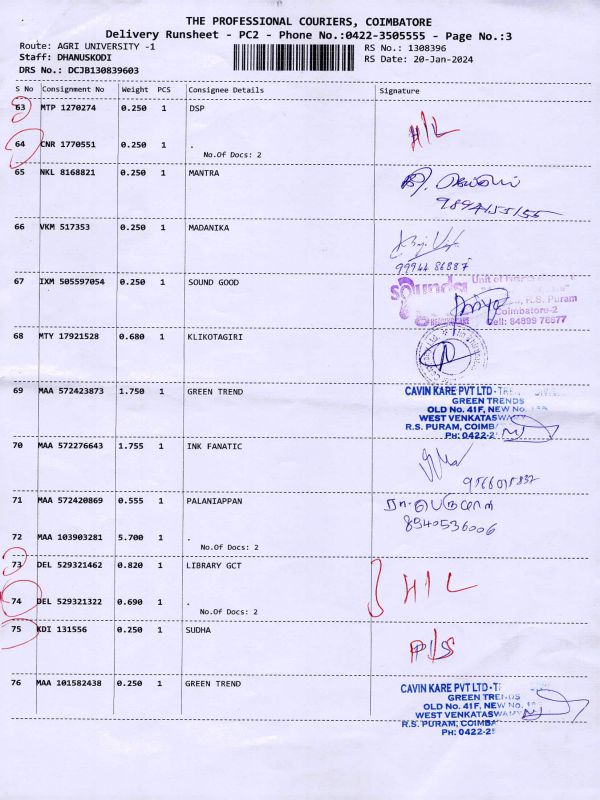 THE PROFESSIONAL COURIERS, COIMBATORE
Delivery Runsheet - PC2 - Phone No.:0422-3505555 - Page No.:3
Route: AGRI UNIVERSITY -1
RS No.: 1308396
Staff: DHANUSKODI
RS Date: 20-Jan-2024
DRS No.: DCJB130839603
S No Consignment No Weight PCS Consignee Details Signature
63 MTP 1270274 0.250 1 DSP
H/L
64 CNR 1770551 0.250 1 .
No.Of Docs: 2
65 NKL 8168821 0.250 1 MANTRA
66 VKM 517353 0.250 1 MADANIKA
99944 86887
67 IXM 505597054 0.250 1 SOUND GOOD
Unit of
R.S. Puram
Coimbatore-2
Cell: 84899 76677
68 MTY 17921528 0.680 1 KLIKOTAGIRI
69 MAA 572423873 1.750 1 GREEN TREND
CAVIN KARE PVT LTD
GREEN TRENDS
OLD No. 41F, NEW No.
WEST VENKATASWAMY
R.S. PURAM, COIMB
PH: 0422-2
70 MAA 572276643 1.755 1 INK FANATIC
71 MAA 572420869 0.555 1 PALANIAPPAN
8940536006
72 MAA 103903281 5.700 1 .
No.Of Docs: 2
73 DEL 529321462 0.820 1 LIBRARY GCT
H/L
74 DEL 529321322 0.690 1 .
No.Of Docs: 2
75 KDI 131556 0.250 1 SUDHA
76 MAA 101582438 0.250 1 GREEN TREND
CAVIN KARE PVT LTD
GREEN TRENDS
OLD No. 41F, NEW No.
WEST VENKATASWAMY
R.S. PURAM, COIMBA
PH: 0422-25